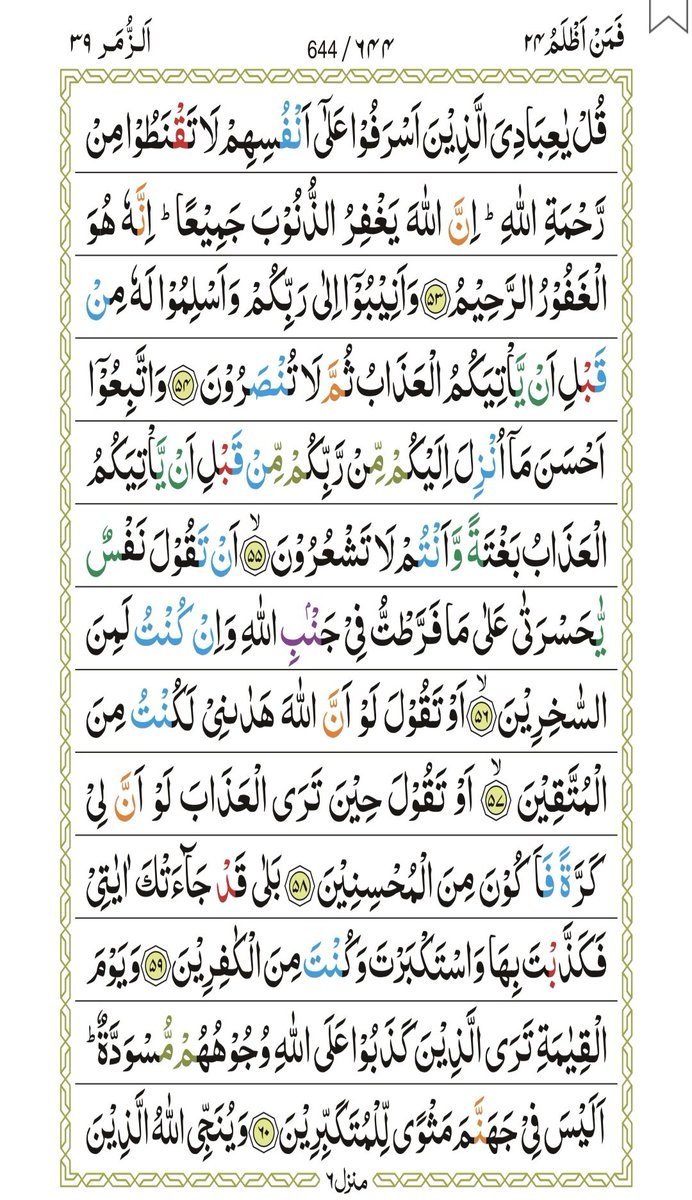 فَمَنۡ اَظۡلَمُ ۲۴
644 / ۶۴۴
اَلزُّمَر ۳۹
قُلۡ يٰعِبَادِىَ الَّذِيۡنَ اَسۡرَفُوۡا عَلٰٓى اَنۡفُسِهِمۡ لَا تَقۡنَطُوۡا مِنۡ
رَّحۡمَةِ اللّٰهِ‌ ؕ اِنَّ اللّٰهَ يَغۡفِرُ الذُّنُوۡبَ جَمِيۡعًا‌ ؕ اِنَّهٗ هُوَ
الۡغَفُوۡرُ الرَّحِيۡمُ ۵۳ وَاَنِيۡبُوۡۤا اِلٰى رَبِّكُمۡ وَاَسۡلِمُوۡا لَهٗ مِنۡ
قَبۡلِ اَنۡ يَّاۡتِيَكُمُ الۡعَذَابُ ثُمَّ لَا تُنۡصَرُوۡنَ ۵۴ وَاتَّبِعُوۡۤا
اَحۡسَنَ مَاۤ اُنۡزِلَ اِلَيۡكُمۡ مِّنۡ رَّبِّكُمۡ مِّنۡ قَبۡلِ اَنۡ يَّاۡتِيَكُمُ
الۡعَذَابُ بَغۡتَةً وَّاَنۡتُمۡ لَا تَشۡعُرُوۡنَ ۙ ۵۵ اَنۡ تَقُوۡلَ نَفۡسٌ
يّٰحَسۡرَتٰى عَلٰى مَا فَرَّطْتُّ فِىۡ جَنۡۢبِ اللّٰهِ وَاِنۡ كُنۡتُ لَمِنَ
السّٰخِرِيۡنَ ۙ ۵۶ اَوۡ تَقُوۡلَ لَوۡ اَنَّ اللّٰهَ هَدٰٮنِىۡ لَكُنۡتُ مِنَ
الۡمُتَّقِيۡنَ ۙ ۵۷ اَوۡ تَقُوۡلَ حِيۡنَ تَرَى الۡعَذَابَ لَوۡ اَنَّ لِىۡ
كَرَّةً فَاَكُوۡنَ مِنَ الۡمُحۡسِنِيۡنَ ۵۸ بَلٰى قَدۡ جَآءَتۡكَ اٰيٰتِىۡ
فَكَذَّبۡتَ بِهَا وَاسۡتَكۡبَرۡتَ وَكُنۡتَ مِنَ الۡكٰفِرِيۡنَ ۵۹ وَيَوۡمَ
الۡقِيٰمَةِ تَرَى الَّذِيۡنَ كَذَبُوۡا عَلَى اللّٰهِ وُجُوۡهُهُمۡ مُّسۡوَدَّةٌ  ؕ
اَلَيۡسَ فِىۡ جَهَنَّمَ مَثۡوًى لِّلۡمُتَكَبِّرِيۡنَ ۶۰ وَيُنَجِّى اللّٰهُ الَّذِيۡنَ
منزل ۶